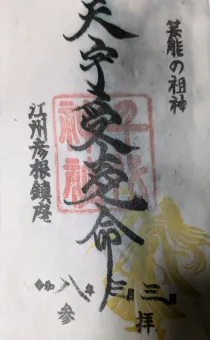 芸能の祖神
天宇受賣命
江州彦根鎮座
千代
神社
令和八年三月三日
参拝